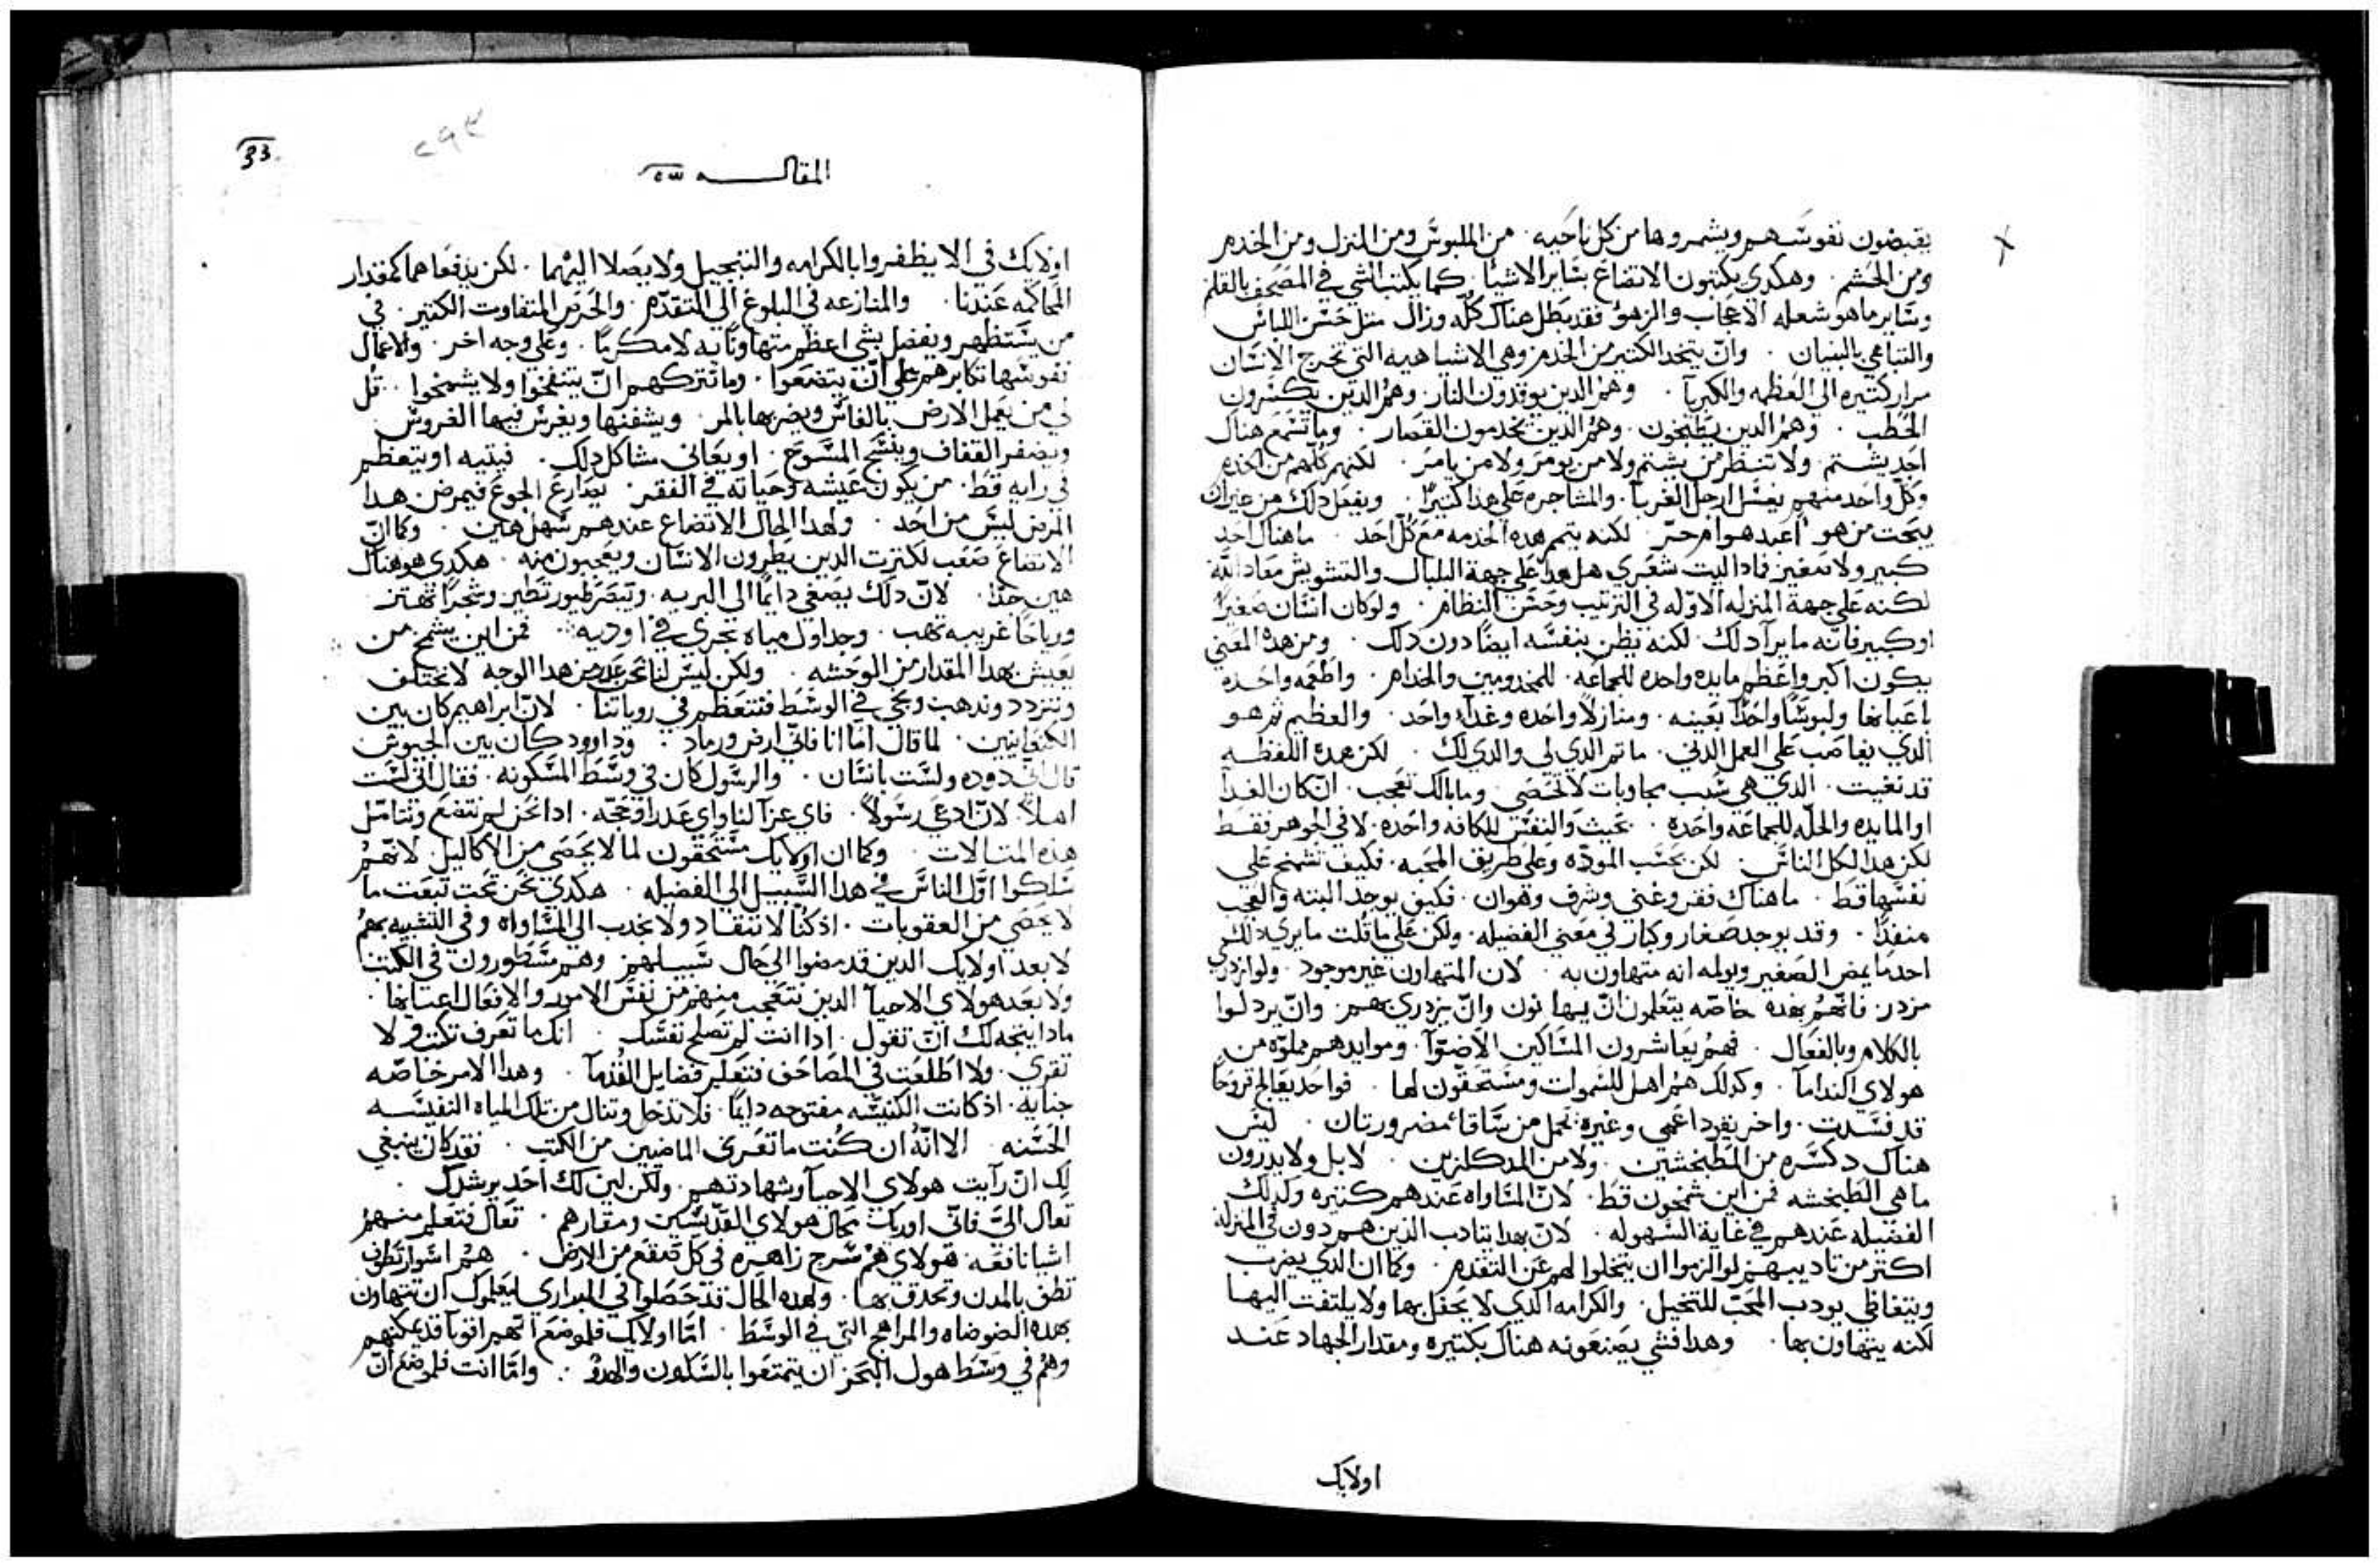 يقبضون نفوسهم ويشمروها من كل ناحيه . من الملبوس ومن المنزل ومن الخدم
ومن الحشم . وهكدي يكتبون الاتضاع بساير الاشيا . كما يكتب الشي في المصحف بالقلم
وساير ما هو شعله الاعجاب والزهو فقد بطل هناك كله وزال متل حسن اللباس
والتباهي بالبنيان . وان يتخد الكتير من الخدم وهي الاشيا هيه التي تخرج الانسان
مرار كتيره الي العظمه والكبريا . وهم الدين يوقدون النار . وهم الدين يكسرون
الحطب . وهم الدين يطبخون . وهم الدين يخدمون القصار . وما تسمع هناك
احد يشتم . ولا تنظر من يشتم ولا من يومر ولا من يامر . لكنهم كلهم من الخدم
وكل واحد منهم يغسل ارجل الغربا . والمشاجره علي هدا كتيرا . ويفعل دلك من غير ان
يبحت من هو اعبد هو ام حر . لكنه يتمم هده الخدمه مع كل احد . ما هناك احد
كبير ولا صغير فمادا ليت شعري هل هدا علي جهة البلبال والتشويش معاد الله
لكنه علي جهة المنزله الاوله في الترتيب وحسن النظام . ولو كان انسان صغيرا
او كبير فانه ما يرا دلك . لكنه يظن بنفسه ايضا دون دلك . ومن هدا المعني
يكون اكبر واعظم مايده واحده للجماعه . للمخدومين والخدام . واطعمه واحده
باعيانها ولبوسا واحدا بعينه . ومنازلا واحده وغدا واحد . والعظيم تم هو
الدي يغاصب علي العمل الدني . ما تم الدي لي والدي لك . لكن هده اللفظه
قد نفيت . الدي هي سبب محاربات لا تحصي . وما بالك تعجب . ان كان الغدا
او المايده والحله للجماعه واحده . بحيث والنفس للكافه واحده . لا في الجوهر فقط
لكن هدا لكل الناس . لكن بحسب الموده وعلي طريق المحبه . فكيف تشمخ علي
نفسها قط . ما هناك فقر وغني وشرف وهوان . فكيف يوجد البته والعجب
منفدا . وقد يوجد صغار وكبار في معني الفضيله . ولكن علي ما قلت ما يري دلك
احد ما يمض الصغير ويولمه انه متهاون به . لان المتهاون غير موجود . ولو ازدري
مزدر . فانهم بهده خاصه يتعلمون ان يهانون وان يزدري بهم . وان يردلوا
بالكلام وبالفعال . فهم يعاشرون المساكين الاضوآ . وموايدهم مملوه من
هولاي الندامآ . وكدلك هم اهل للسموات ومستحقون لها . فواحد يعالج قروحا
قد فسدت . واخر يقود اعمي وغيره يحمل من ساقاه مضرورتان . ليس
هناك دكسره من المطبخشين . ولا من المدكلزين . لا بل ولا يدرون
ما هي الطبخشه فمن اين يشمخون قط . لان المساواه عندهم كتيره وكدلك
الفضيله عندهم في غاية السهوله . لان بهدا يتادب الدين هم دون في المنزله
اكتر من تاديبهم لو الزموا ان يتخلوا لهم عن التقدم . وكما ان الدي يضرب
ويتغافي يودب المحب للتخيل . والكرامه الدي لا يحفل بها ولا يلتفت اليها
لكنه يتهاون بها . وهدا فشي يصنعونه هناك بكتيره ومقدار الجهاد عند
اولايك
المقاله
اولايك في الا يظفروا بالكرامه والتبجيل ولا يصلا اليهما . لكن يدفعاهما كمقدار
المحاكمه عندنا . والمنازعه في البلوغ الي التقدم . والحرص المتفاوت الكتير . في
من يستظهر ويفضل بشي اعظم متهاونا به لا مكرما . وعلي وجه اخر . والاعمال
نفوسها تكابرهم علي ان يتضعوا . وما تتركهم ان ينتفخوا ولا يشمخوا . قل
لي من يعمل الارض بالفاس ويضربها بالمر . ويشفنها ويغرس فيها الغروس
ويضفر القفاف وينسج المسوح . او يعاني مشاكل دلك . فيتيه او يتعظم
في رايه قط . من يكون عيشه وحياته في الفقر . يصارع الجوع فيمرض هدا
المرض ليس من احد . ولهدا الحال الاتضاع عندهم سهل هين . وكما ان
الاتضاع صعب لكترت الدين يطرون الانسان ويعجبون منه . هكدي هو هناك
هين جدا . لان دلك يصغي دايما الي البريه . وتبصر طيور تطير وشجرا تهتز
ورياحا غريبه تهب . وجداول مياه تجري في اوديه . فمن اين يشمخ من
يعيش بهدا المقدار من الوحشه . ولكن ليس لنا نحن عدر من هدا الوجه لا نختلف
ونتردد وندهب ونجي في الوسط فنتعظم في روياتنا . لان ابراهيم كان بين
الكنعانيين . لما قال اما انا فاني ارض ورماد . وداوود كان بين الجيوش
قال اني دوده ولست بانسان . والرسول كان في وسط المسكونه . فقال اني لست
اهلا لان ادعي رسولا . فاي عزآ لنا واي عدرا وحجه . ادا نحن لم نتضع ونتامل
هده المتالات . وكما ان اولايك مستحقون لما لا يحصي من الاكاليل لانهم
سلكوا اول الناس في هدا السبيل الي الفضيله . هكدي نحن تحت تبعت ما
لا يحصي من العقوبات . اد كنا لا ننقاد ولا نجدب الي المساواه وفي التشبيه بهم
لا بعد اولايك الدين قد مضوا الي حال سبيلهم وهم مسطورون في الكتب
ولا بعد هولاي الاحيآ الدين نتعجب منهم من نفس الامور والافعال اعيانها .
مادا يتجه لك ان تقول . ادا انت لم تصلح نفسك . انك ما تعرف تكتب ولا
تقري . ولا اطلعت في المصاحف فتعلم فضايل القدمآ . وهدا الامر خاصه
جنايه . اد كانت الكنيسه مفتوحه دايما . فلا تدخل وتنال من تلك المياه النفيسه
الحسنه . الا انه ان كنت ما تعرف الماضيين من الكتب . فقد كان ينبغي
لك ان رايت هولاي الاحيآ وشهادتهم . ولكن ليس لك احد يرشدك .
تعال الي فاني اوريك محال هولاي القديسين ومقارهم . تعال فتعلم منهم
اشيا نافعه فهولاي هم سرج زاهره في كل صقع من الارض . هم اسوار تطوف
تطف بالمدن وتحدق بها . ولهده الحال قد حصلوا في البراري ليعلموك ان تتهاون
بهده الضوضاه والمراهج التي في الوسط . اما اولايك فلو ضع انهم اقويآ قد يمكنهم
وهم في وسط هول البحر ان يتمتعوا بالسكون والهدو . واما انت فلو ضع ان